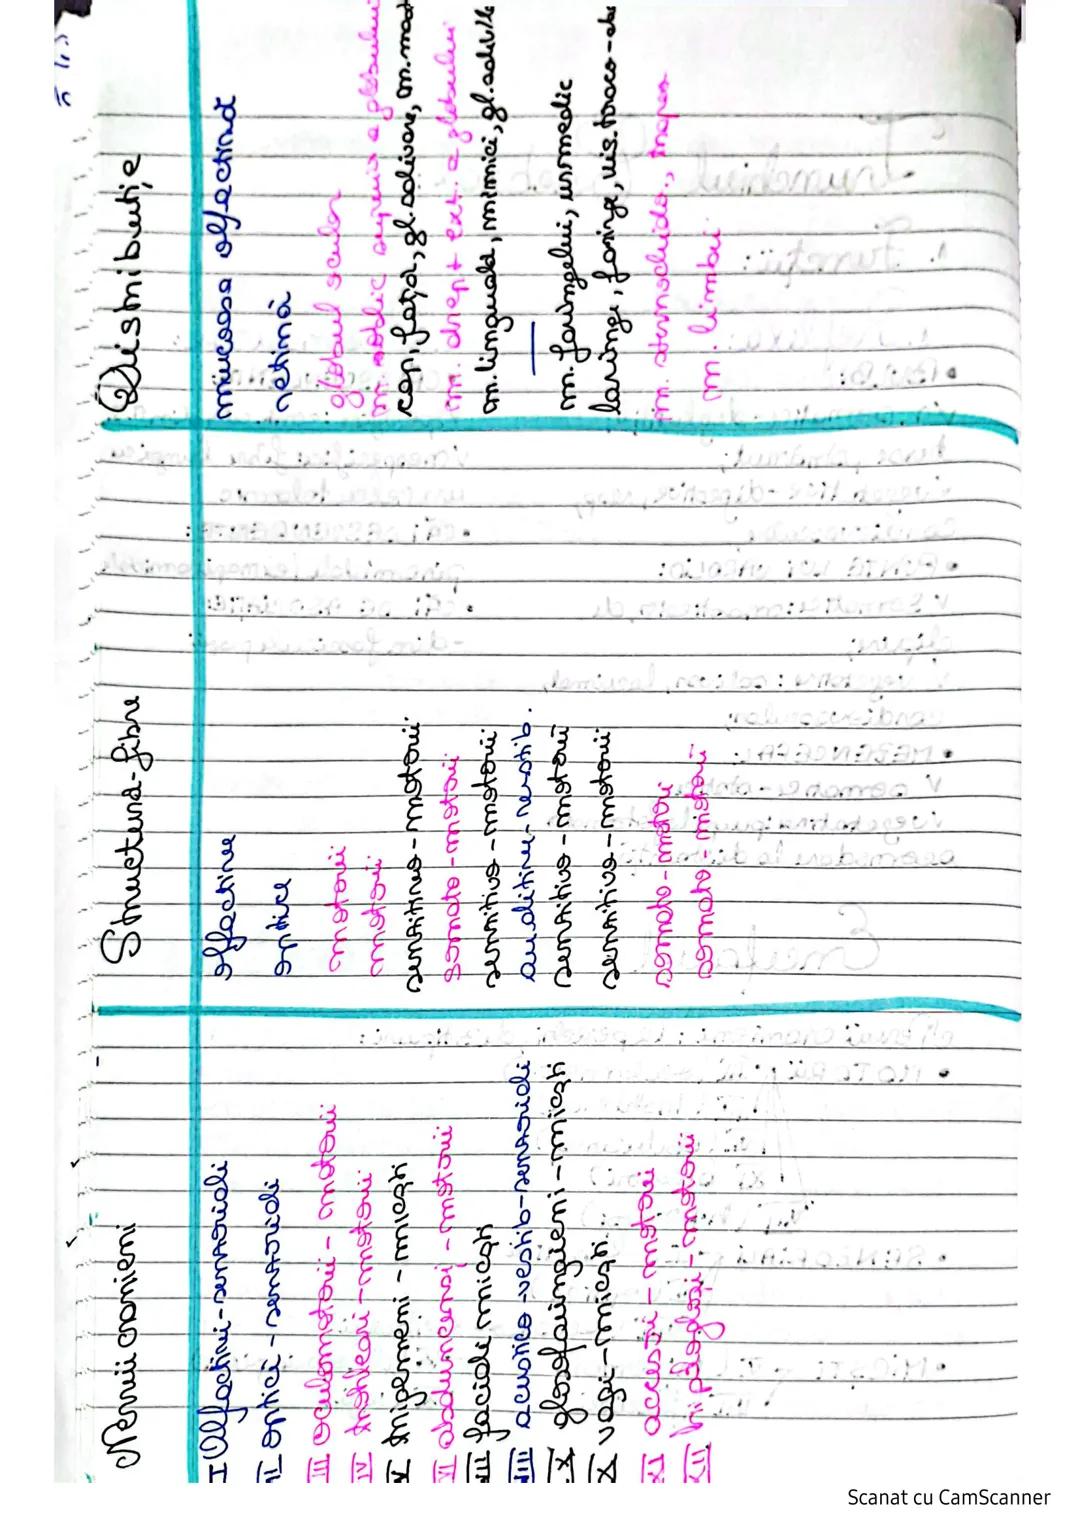 Nervii cranieni Structura-fibre Distribuție
I Olfactivi-senzoriali olfactive mucoasa olfactivă
II optici-senzoriali optice retină
III oculomotorii-motorii motorii globul ocular
IV trohleari-motorii motorii m. oblic superior a globului
V trigemeni-micști senzitivo-motorii cap, fața, gl.salivare, m.mast
VI abducenși-motorii somato-motorii m. drept ext. a globului
VII faciali micști senzitivo-motorii m.linguală, mimicii, gl.saliv
VIII acustico-vestib-senzoriali auditive-vestib. —
IX glosofaringieni-micști senzitivo-motorii m. faringelui,
X vagi-micști senzitivo-motorii laringe, faringe, vis.toraco-ab
XI accesori-motorii somato-motorii m. trapez
XII hipogloși-motorii somato-motorii m. limbii
Scanat cu CamScanner